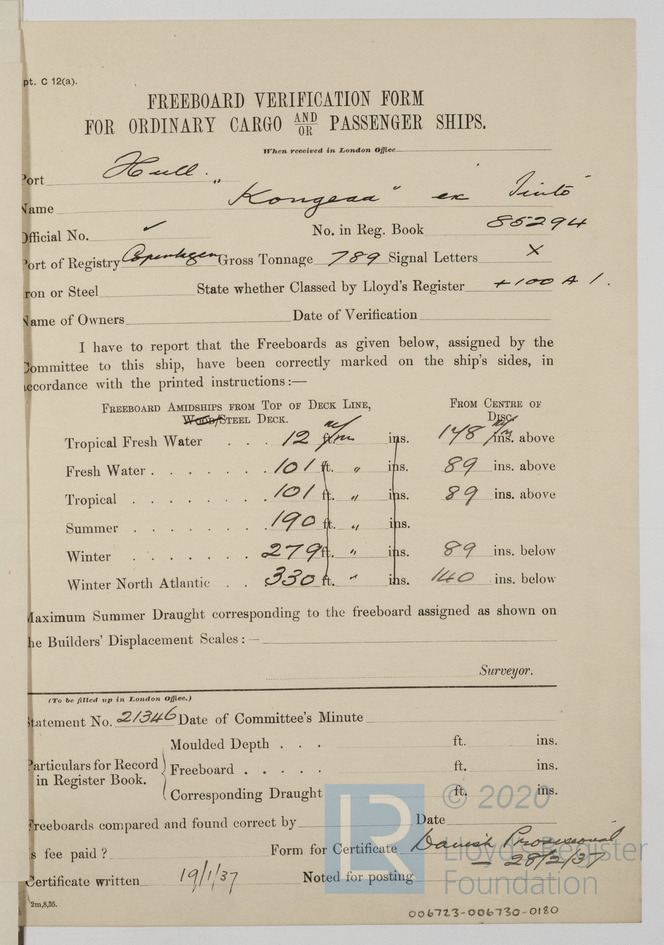 pt. C 12(a).
FREEBOARD VERIFICATION FORM
FOR ORDINARY CARGO AND/OR PASSENGER SHIPS.
When received in London Office
Port Hull.
Name "Kongeaa" ex Tinto
Official No. ✓ No. in Reg. Book 85294
Port of Registry Copenhagen Gross Tonnage 789 Signal Letters X
Iron or Steel State whether Classed by Lloyd's Register +100 A 1.
Name of Owners Date of Verification
I have to report that the Freeboards as given below, assigned by the
Committee to this ship, have been correctly marked on the ship's sides, in
accordance with the printed instructions:—
FREEBOARD AMIDSHIPS FROM TOP OF DECK LINE, FROM CENTRE OF
WOOD/STEEL DECK. DISC.
Tropical Fresh Water . . . 12 m/m ins. 148 m/m ins. above
Fresh Water . . . . . . . 101 ft. " ins. 89 ins. above
Tropical . . . . . . . 101 ft. " ins. 89 ins. above
Summer . . . . . . . 190 ft. " ins.
Winter . . . . . . . 279 ft. " ins. 89 ins. below
Winter North Atlantic . . 330 ft. " ins. 140 ins. below
Maximum Summer Draught corresponding to the freeboard assigned as shown on
the Builders' Displacement Scales:—
Surveyor.
(To be filled up in London Office.)
Statement No. 21346 Date of Committee's Minute
Moulded Depth . . . ft. ins.
Particulars for Record in Register Book. Freeboard . . . . . ft. ins.
Corresponding Draught ft. ins.
© 2020
Freeboards compared and found correct by Date
Is fee paid? Form for Certificate Danish Provisional
Lloyd's Register
28/2/37
Certificate written 19/1/37 Noted for posting
Foundation
2m,8,35.
006723-006730-0180